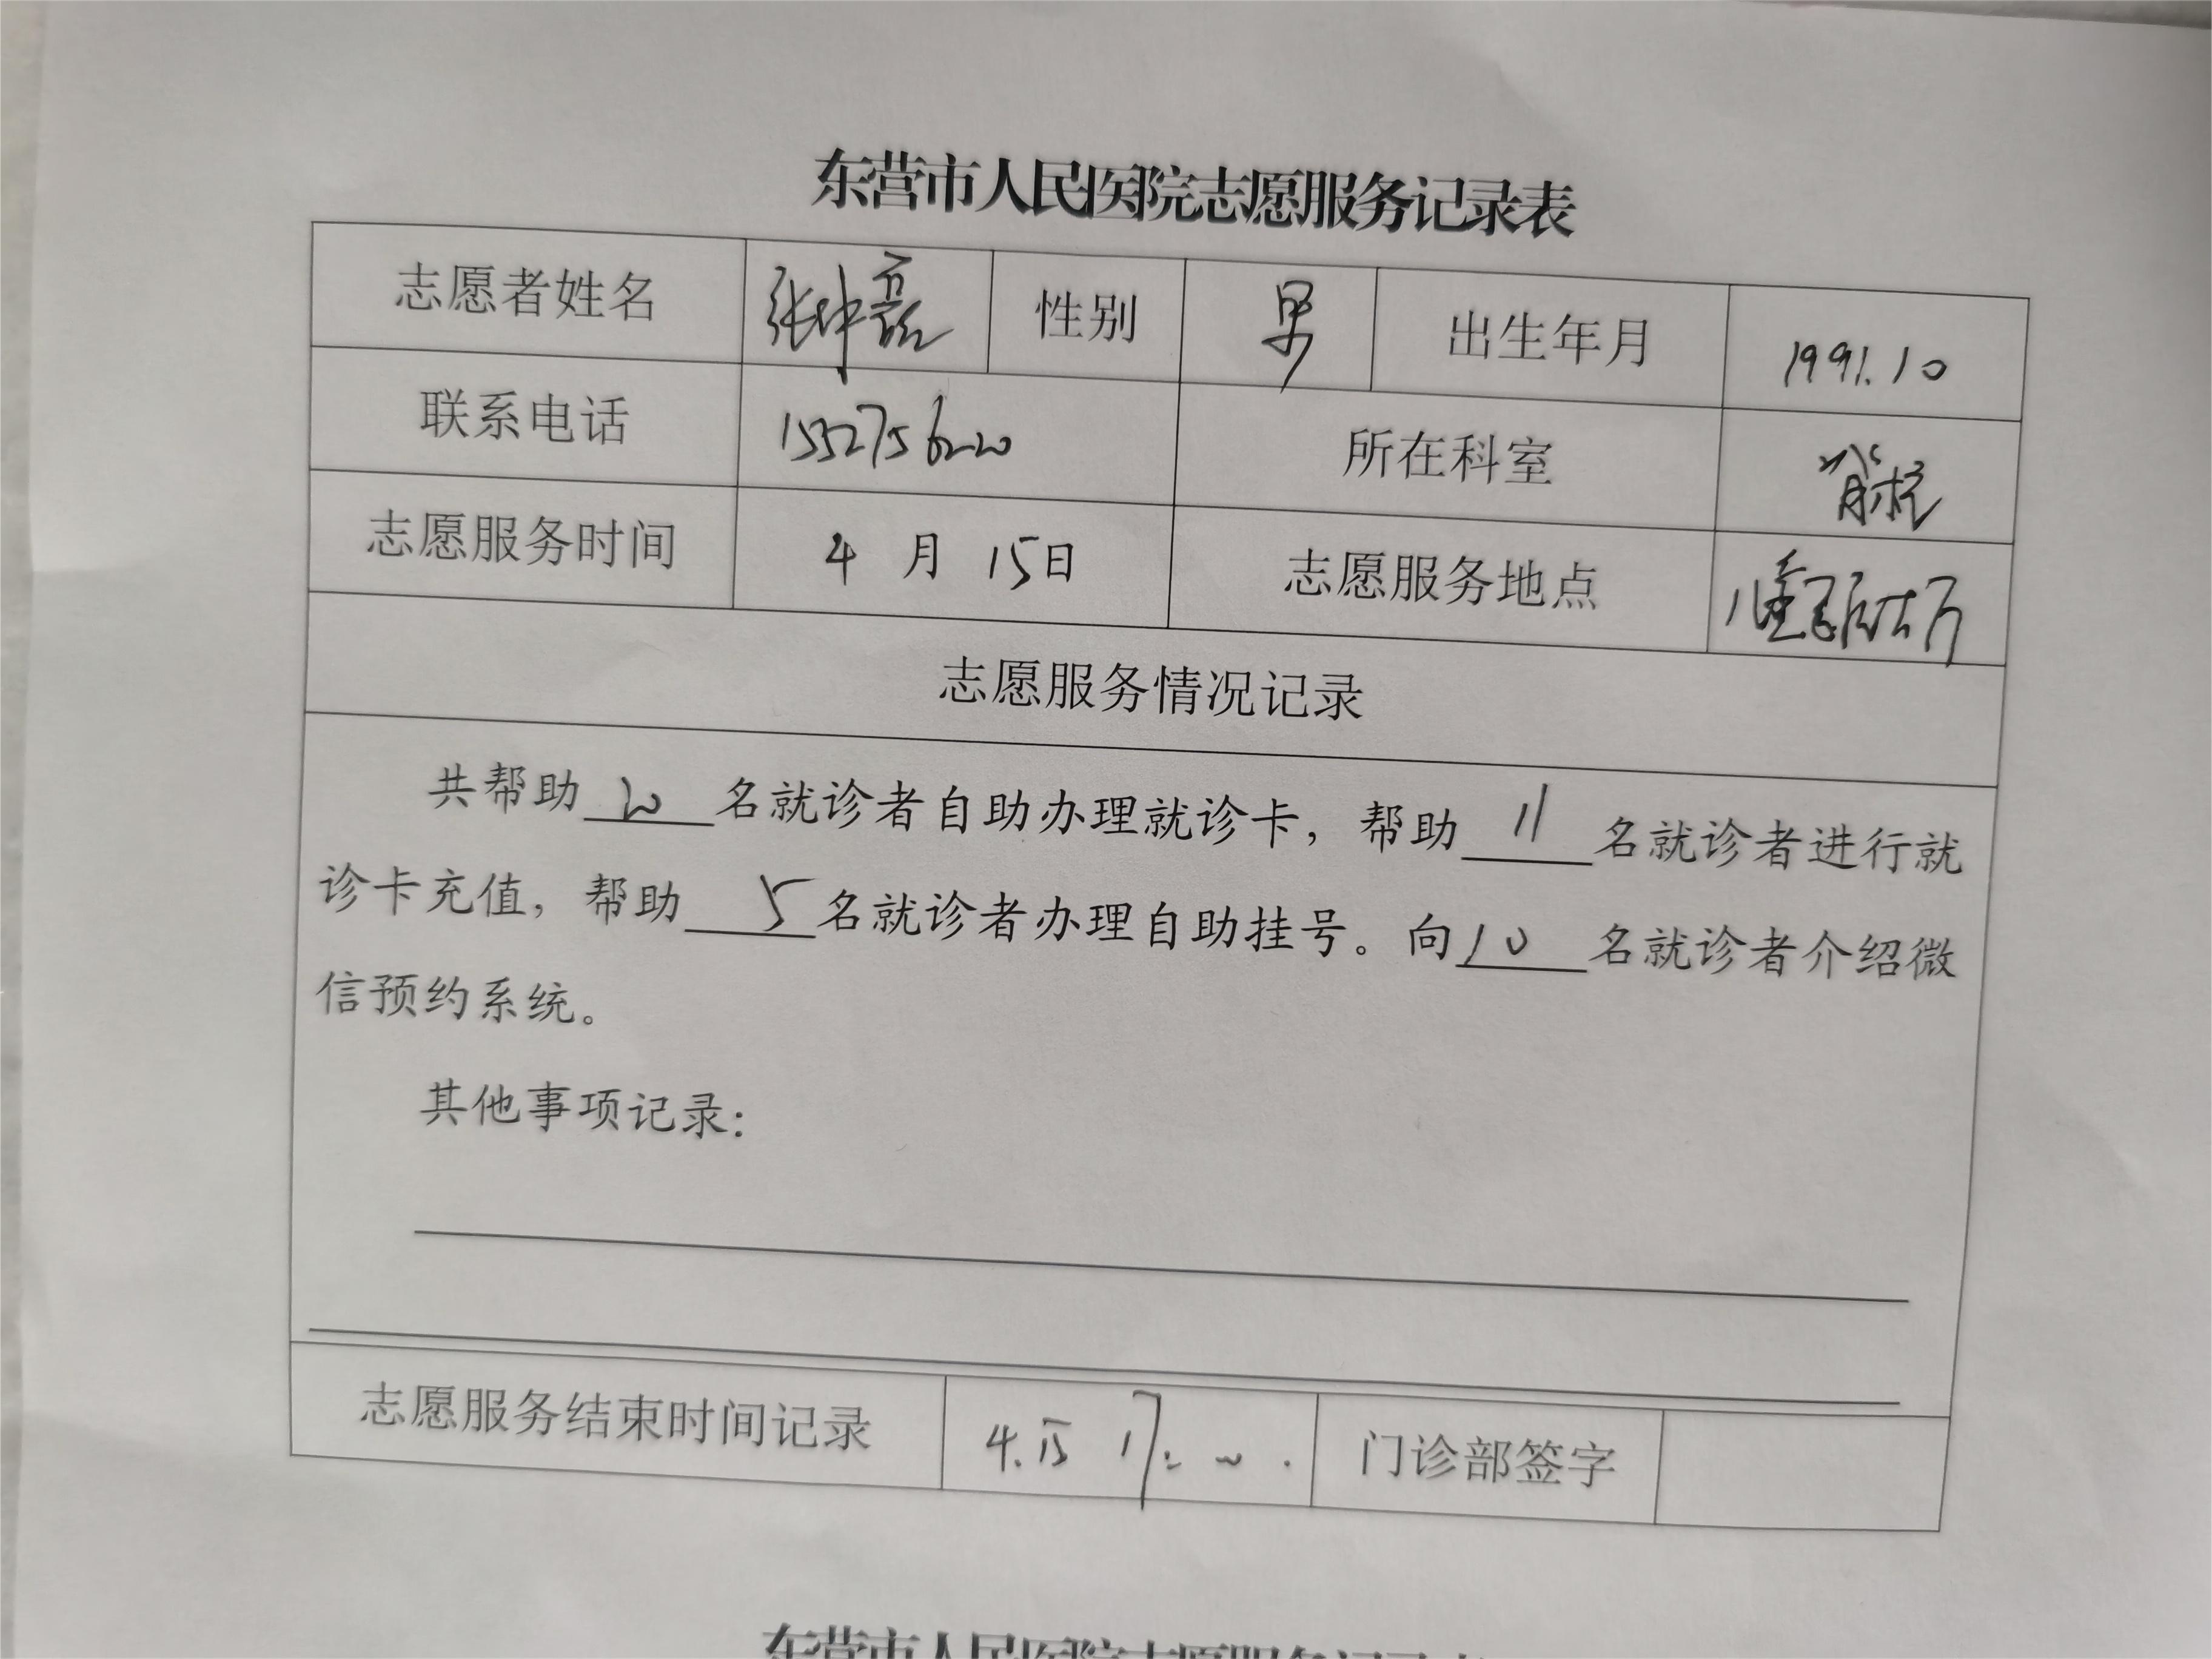 东营市人民医院志愿服务记录表
志愿者姓名 张坤磊 性别 男 出生年月 1991.10
联系电话 所在科室
志愿服务时间 4 月 15日 志愿服务地点
志愿服务情况记录
共帮助 20 名就诊者自助办理就诊卡，帮助 11 名就诊者进行就
诊卡充值，帮助 5 名就诊者办理自助挂号。向 10 名就诊者介绍微
信预约系统。
其他事项记录：
志愿服务结束时间记录 4.15 17: 门诊部签字
东营市人民医院志愿服务记录表